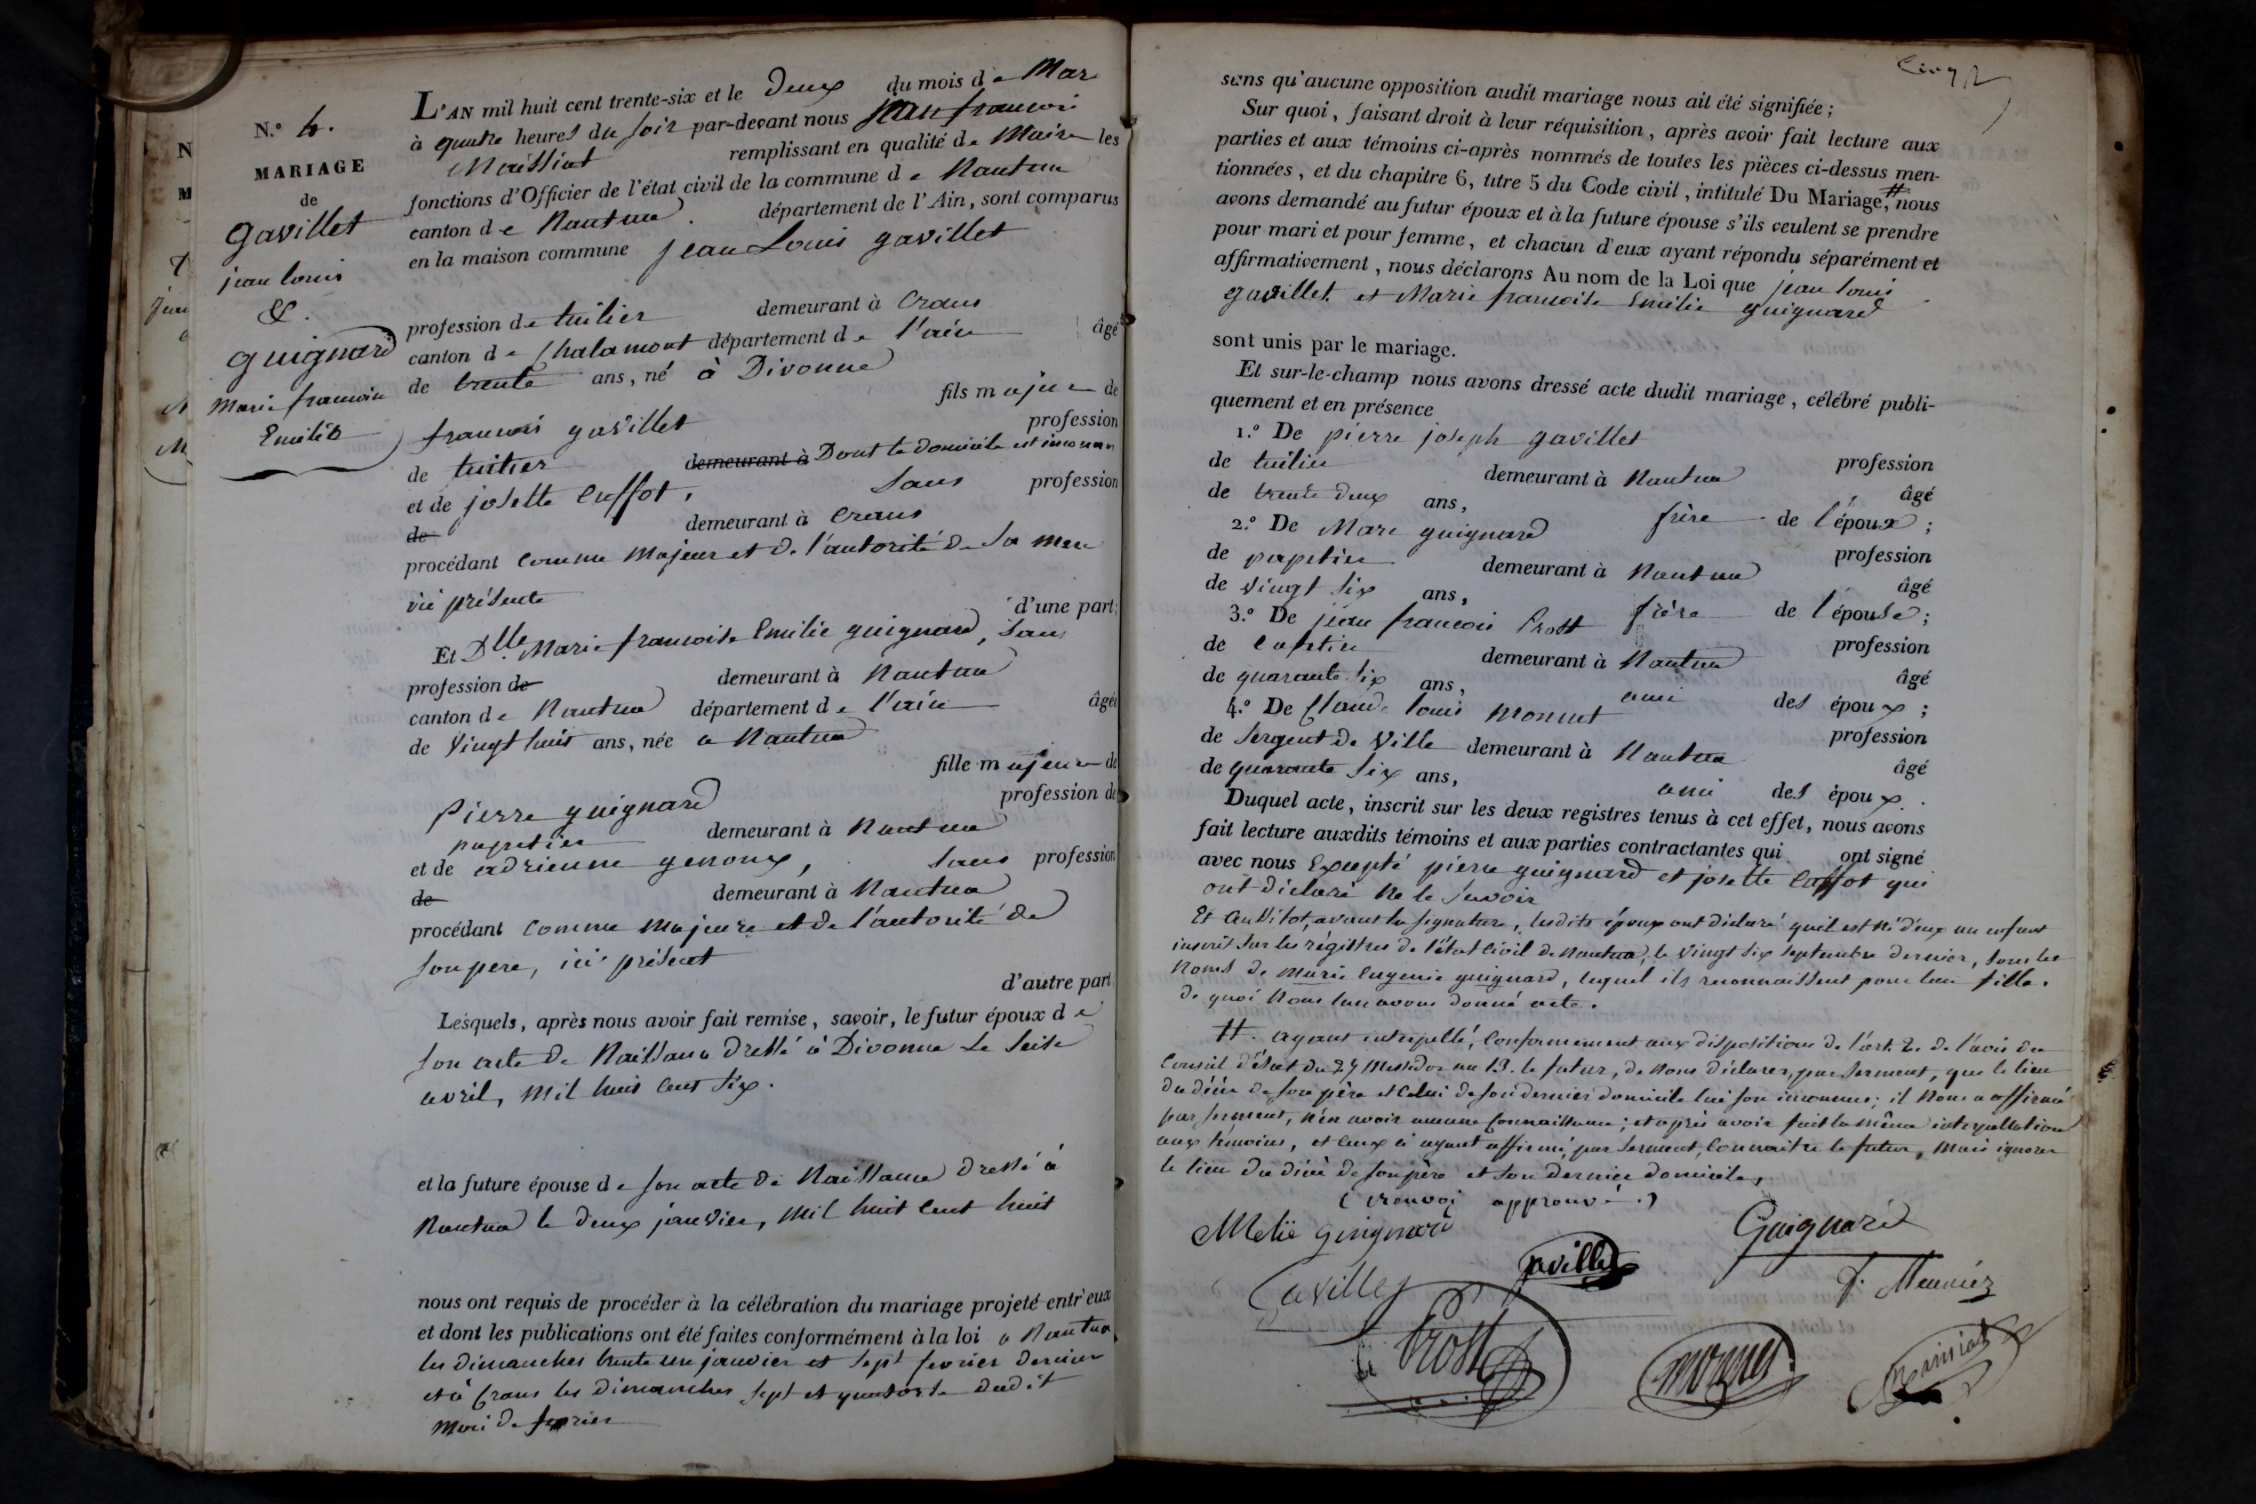 N.º 4.
MARIAGE
de
Gavillet
jean louis
&.
guignard
Marie francoise
Emilie
L'AN mil huit cent trente-six et le Deux du mois de Mars
à quatre heures du soir par-devant nous jean francois
Maissiat remplissant en qualité de Maire les
fonctions d'Officier de l'état civil de la commune de Nantua
canton de Nantua. département de l'Ain, sont comparus
en la maison commune jean Louis gavillet
profession de tuilier demeurant à Crans
canton de Chalamont département de l'ain âgé
de trente ans, né à Divonne
fils majeur de
francois gavillet profession
de tuilier demeurant à Dont le domicile est inconnu
et de josette Cuffot, sans profession
de demeurant à Crans
procédant comme Majeur et de l'autorité de sa mere
ici présente
d'une part;
Et Dlle Marie francoise Emilie guignard, sans
profession de demeurant à Nantua
canton de Nantua département de l'ain âgée
de Vingt huit ans, née a Nantua
fille majeure de
Pierre guignard profession de
papetier demeurant à Nantua
et de adrienne genoux, sans profession
de demeurant à Nantua
procédant comme Majeure et de l'autorité de
son pere, ici présent
d'autre part
Lesquels, après nous avoir fait remise, savoir, le futur époux de
son acte de Naissance dressé à Divonne Le seise
avril, Mil huit cent six.
et la future épouse de son acte de Naissance dressé à
Nantua le deux janvier, Mil huit cent huit
nous ont requis de procéder à la célébration du mariage projeté entr'eux
et dont les publications ont été faites conformément à la loi a Nantua
les dimanches trente un janvier et sept fevrier dernier
et à Crans les Dimanches sept et quatorse dudit
Mois de fevrier
Cinq
sans qu'aucune opposition audit mariage nous ait été signifiée;
Sur quoi, faisant droit à leur réquisition, après avoir fait lecture aux
parties et aux témoins ci-après nommés de toutes les pièces ci-dessus men-
tionnées, et du chapitre 6, titre 5 du Code civil, intitulé Du Mariage, # nous
avons demandé au futur époux et à la future épouse s'ils veulent se prendre
pour mari et pour femme, et chacun d'eux ayant répondu séparément et
affirmativement, nous déclarons Au nom de la Loi que jean louis
gavillet et Marie francoise Emilie guignard
sont unis par le mariage.
Et sur-le-champ nous avons dressé acte dudit mariage, célébré publi-
quement et en présence
1.º De pierre joseph gavillet profession
de tuilier demeurant à Nantua âgé
de trente deux ans, frère de l'époux;
2.º De Marc guignard profession
de papetier demeurant à Nantua âgé
de vingt six ans, frère de l'épouse;
3.º De jean francois Crost profession
de demeurant à Nantua âgé
de quarante six ans, ami des époux;
4.º De Claude louis Monnet profession
de sergent de Ville demeurant à Nantua âgé
de quarante six ans, ami des époux.
Duquel acte, inscrit sur les deux registres tenus à cet effet, nous avons
fait lecture auxdits témoins et aux parties contractantes qui ont signé
avec nous Excepté pierre guignard et josette Cuffot qui
ont déclaré ne le savoir
Et aussitot, avant la signature, lesdits époux ont déclaré quil est né d'eux un enfant
inscrit sur les régistres de l'état Civil de Nantua, le vingt six septembre dernier, sous les
Noms de Marie Eugenie guignard, lequel ils reconnaissent pour leur fille.
de quoi Nous leur avons donné acte.
#. ayant interpellé, Conformement aux dispositions de l'art. 2. de l'avis du
Conseil d'état du 27 Messidor an 13. le futur, de Nous déclarer, par serment, que le lieu
du décès de son père et Celui de son dernier domicile lui son inconnus; il Nous a affirmé
par serment, n'en avoir aucune Connaissance; et après avoir fait la même interpellation
aux témoins, et ceux ci ayant affirmé, par serment, Connaitre le futur, Mais ignorer
le lieu du décès de son père et son dernier domicile,
(renvoi approuvé.)
Melie guignard
Guignard
Gavillet
gavillet
f. Meunier
Crost
monnet
Maissiat